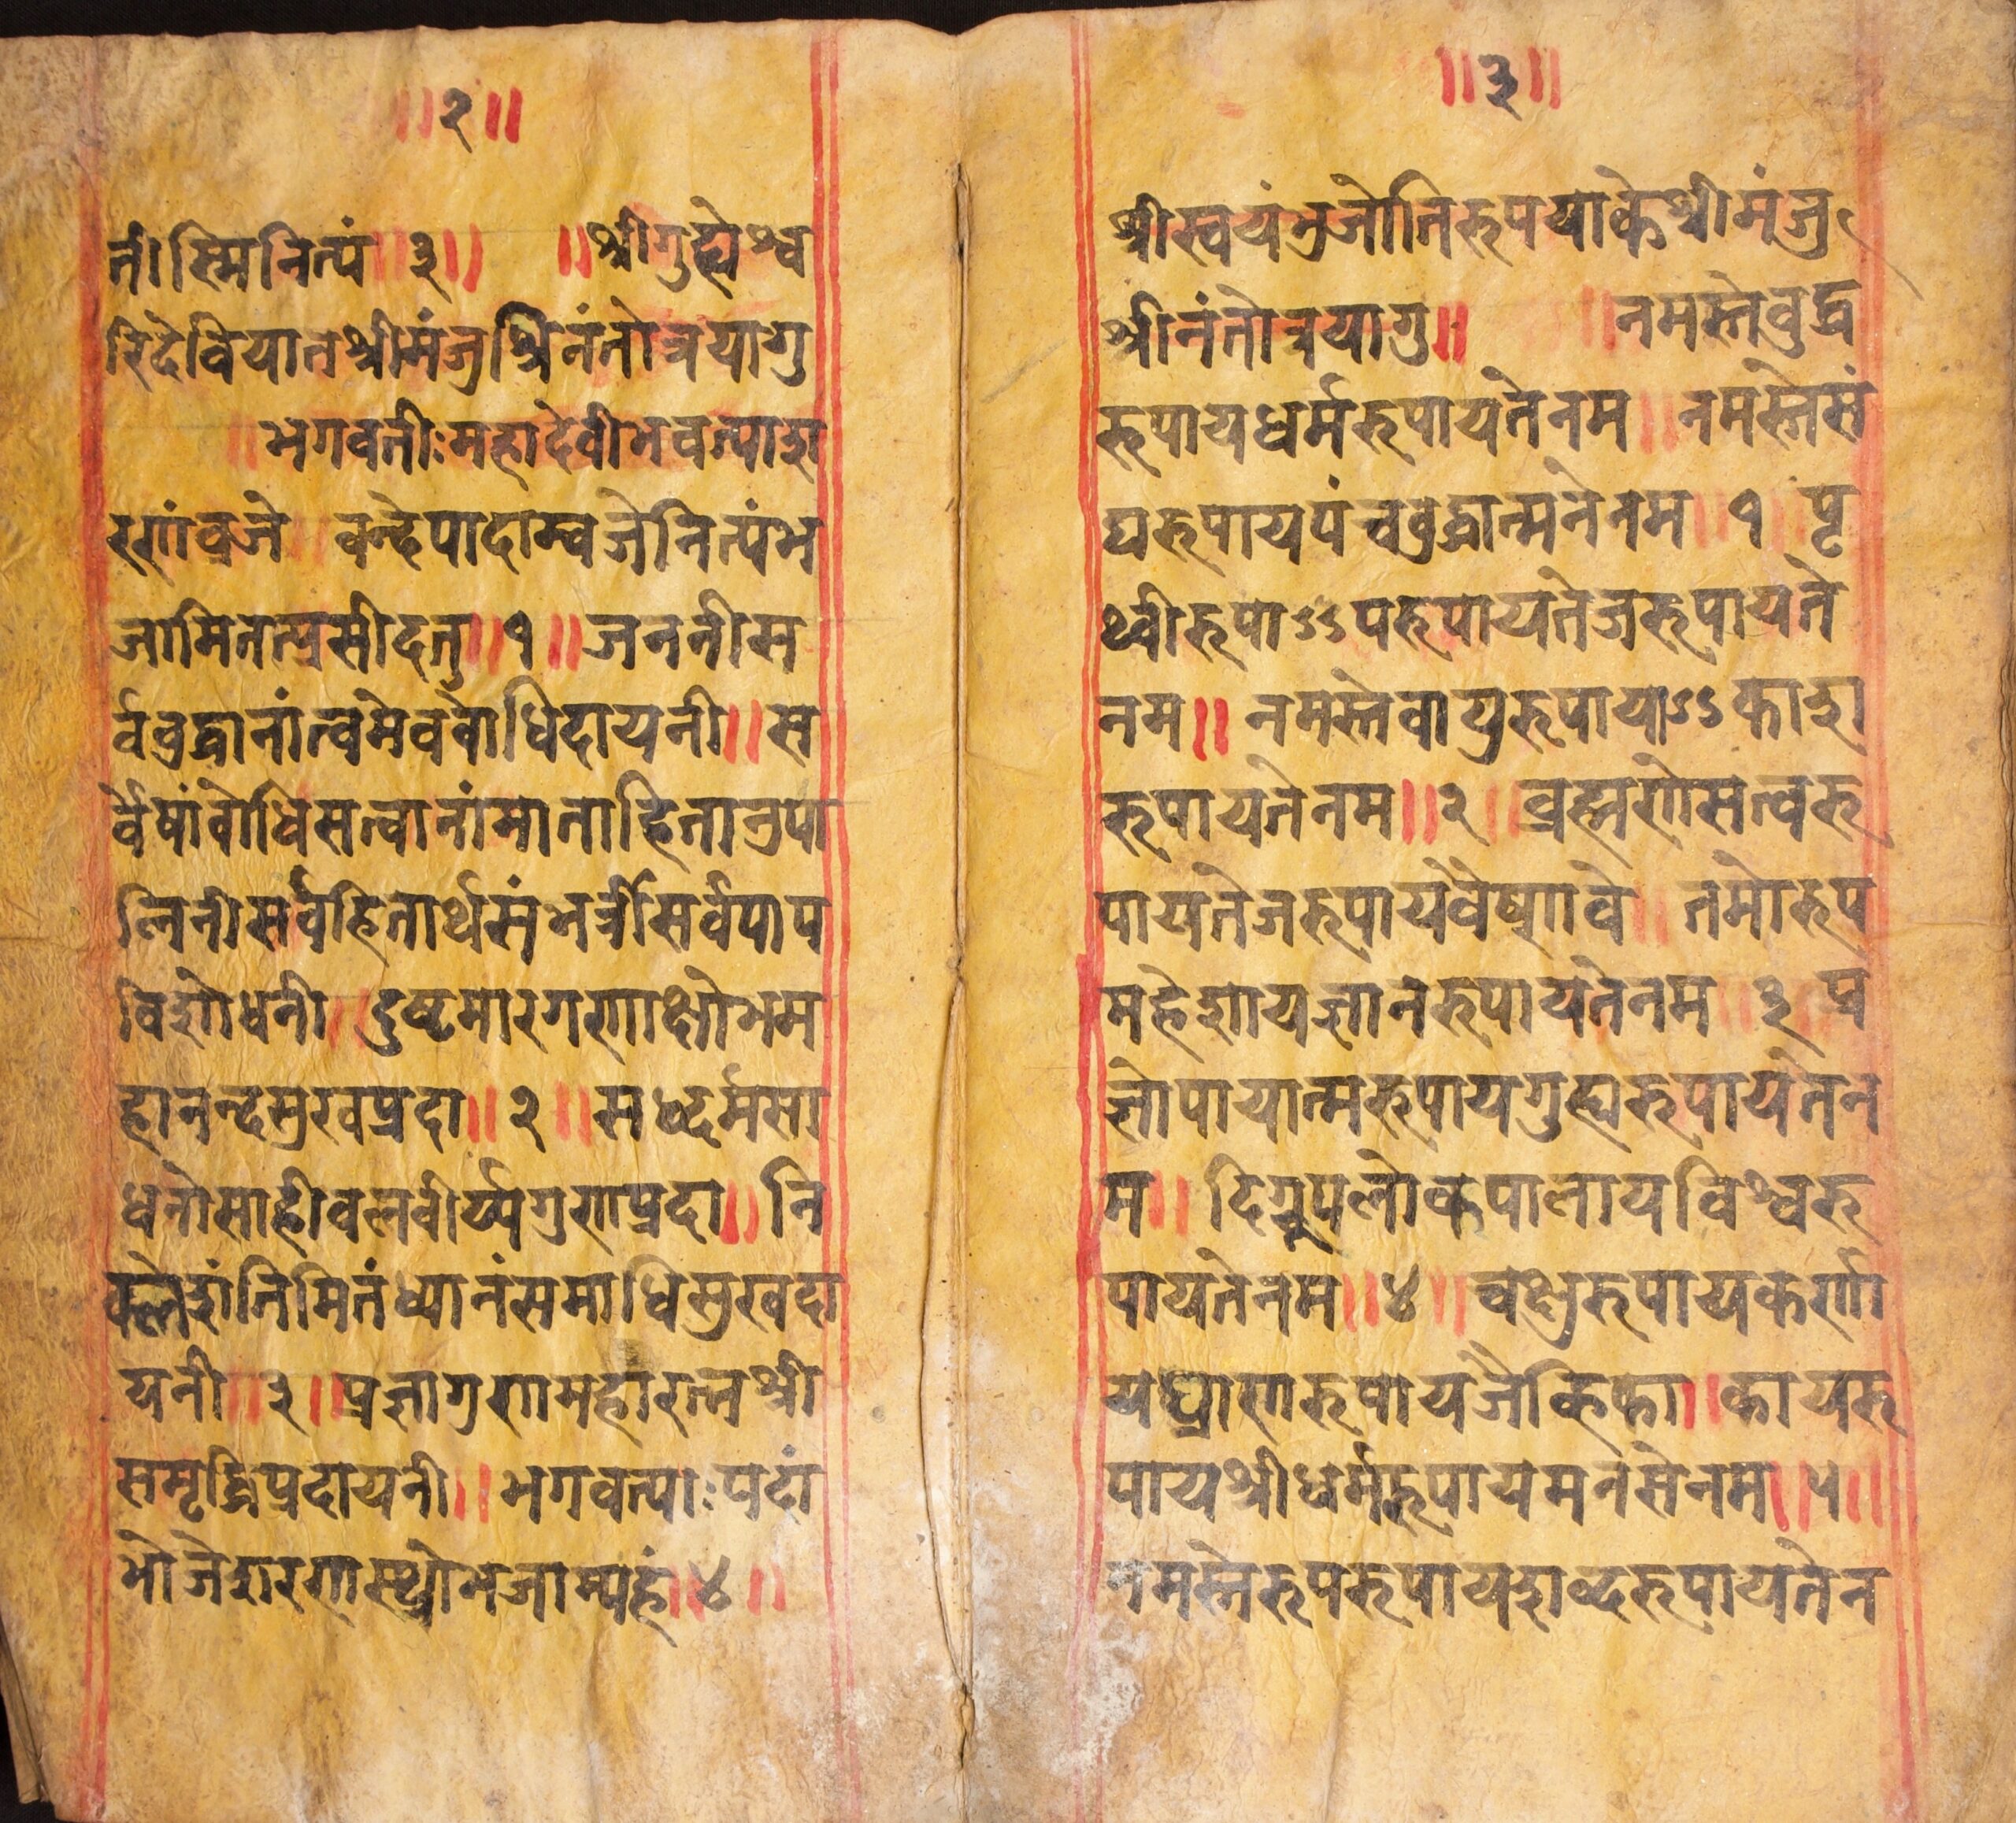 ॥२॥
तां स्मिनित्यं ॥ ३॥ ॥श्रीगुह्येश्व
रिदेवियातश्रीमंजुश्रिनंतोत्रयागु
॥भगवतीःमहादेवीभवत्याश
रणांव्रजे ॥ वन्देपादाम्वजेनित्यंभ
जामितत्प्रसीदतु॥१॥जननीस
र्ववुद्धानांत्वमेववोधिदायनी॥स
र्वेषांवोधिसत्वानांमाताहितानुपा
लिनीसर्वहितार्थसंभर्त्रीसर्वपाप
विशोधनी ॥ दुष्टमारगणाक्षोभम
हानन्दसुखप्रदा॥२॥सध्दर्मसा
धनोसाहीवलवीर्य्यगुणप्रदा॥नि
क्लेशंनिमितंध्यानंसमाधिसुखदा
यनी॥३॥प्रज्ञागुणामहारत्नश्री
समृद्धिप्रदायनी॥भगवत्याःपदां
भोजेशरणास्थोभजाम्यहं॥४॥
॥३॥
श्रीस्वयंभुजोतिरुपयाकेश्रीमंजु
श्रीनंतोत्रयागु॥ ॥नमस्तेवुद्ध
रुपायधर्मरुपायतेनम॥नमस्तेसं
घरुपायपंचवुद्धात्मनेनम॥१॥पृ
थ्वीरुपाऽऽपरुपायतेजरुपायते
नम॥नमस्तेवायुरुपायाऽऽकाश
रुपायतेनम॥२॥व्रह्मणेसत्वरु
पायतेजरुपायवैष्णवे॥तमोरुप
महेशायज्ञानरुपायतेनम॥३॥प्र
ज्ञोपायात्मरुपायगुह्यरुपायतेन
म॥दिग्रुपलोकपालायविश्वरु
पायतेनम॥४॥चक्षुरुपायकर्णा
यघ्राणरुपायजैव्हिका॥कायरु
पायश्रीधर्मरुपायमनसेनम॥५॥
नमस्तेरुपरुपायशव्दरुपायतेन